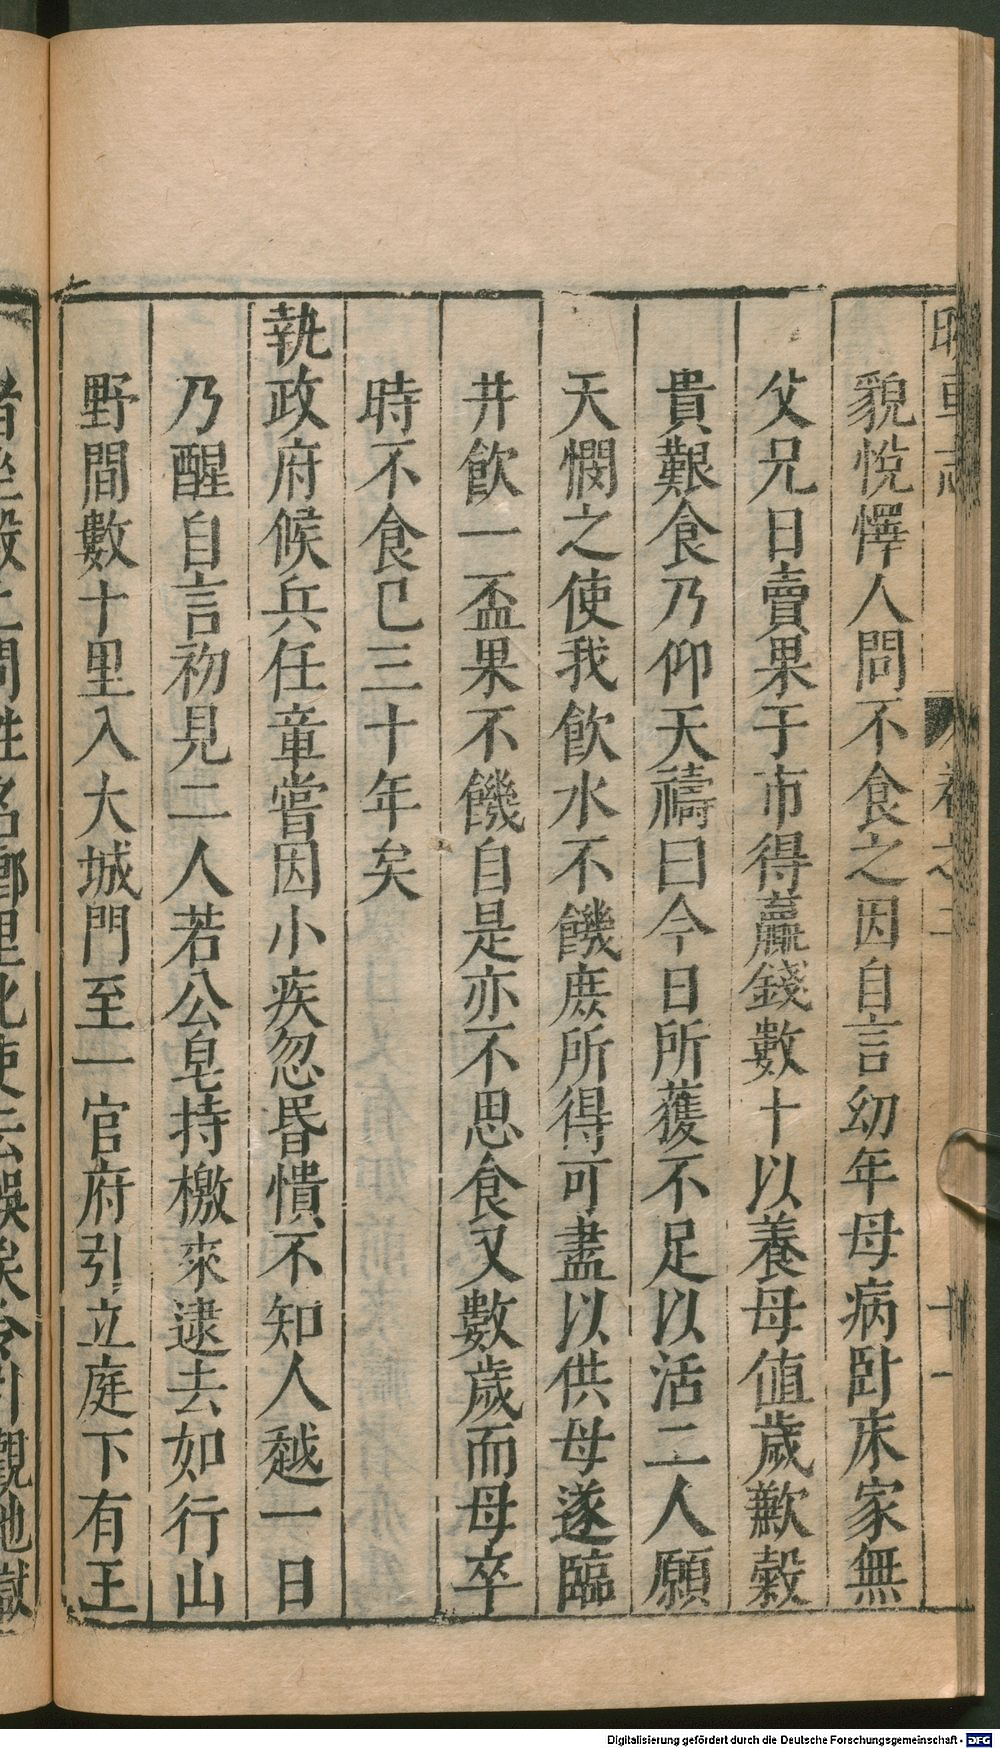 貌悅懌人問不食之因自言幼年母病臥床家無
父兄日賣果于市得蠃錢數十以養母值歲歉穀
貴艱食乃仰天禱曰今日所獲不足以活二人願
天憫之使我飲水不饑庶所得可盡以供母遂臨
井飲一盃果不饑自是亦不思食又數歲而母卒
時不食已三十年矣
執政府候兵任童嘗因小疾忽昬憒不知人越一日
乃醒自言初見二人若公皂持檄來逮去如行山
野間數十里入大城門至一官府引立庭下有王
者坐殿上問姓名鄉里化吏云誤矣令引觀地獄
Digitalisierung gefördert durch die Deutsche Forschungsgemeinschaft - DFG